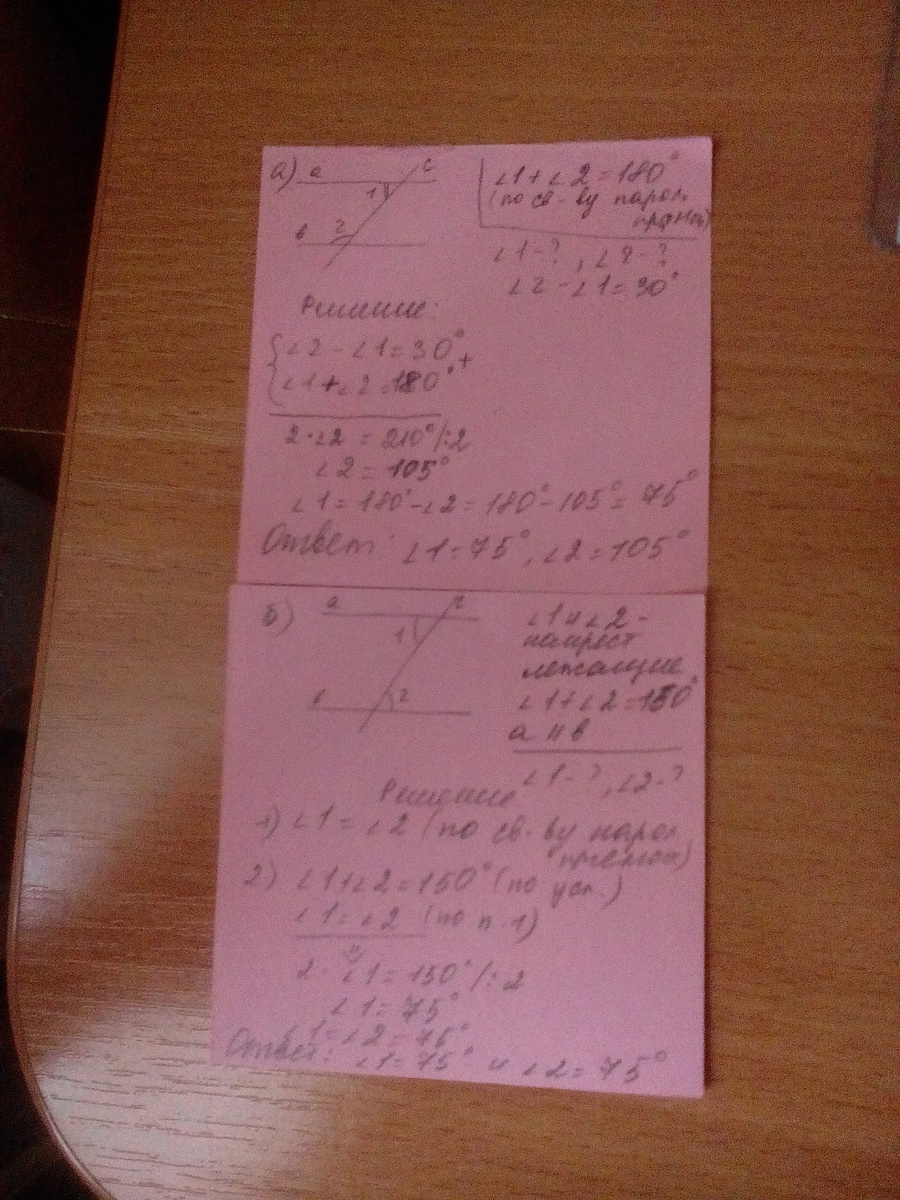 а) a c
1
в 2
∠1+∠2=180°
(по св-ву парал.
прямых)
∠1-?, ∠2-?
∠2-∠1=30°
Решение:
∠2-∠1=30° +
∠1+∠2=180°
2·∠2=210° /:2
∠2=105°
∠1=180°-∠2=180°-105°=75°
Ответ: ∠1=75°, ∠2=105°
б) a c
1
в 2
∠1 и ∠2-
накрест
лежащие
∠1+∠2=150°
a || в
∠1-?, ∠2-?
Решение
1) ∠1=∠2 (по св-ву парал.
прямых)
2) ∠1+∠2=150° (по усл.)
∠1=∠2 (по п.1)
2·∠1=150° /:2
∠1=75°
∠1=∠2=75°
Ответ: ∠1=75° и ∠2=75°